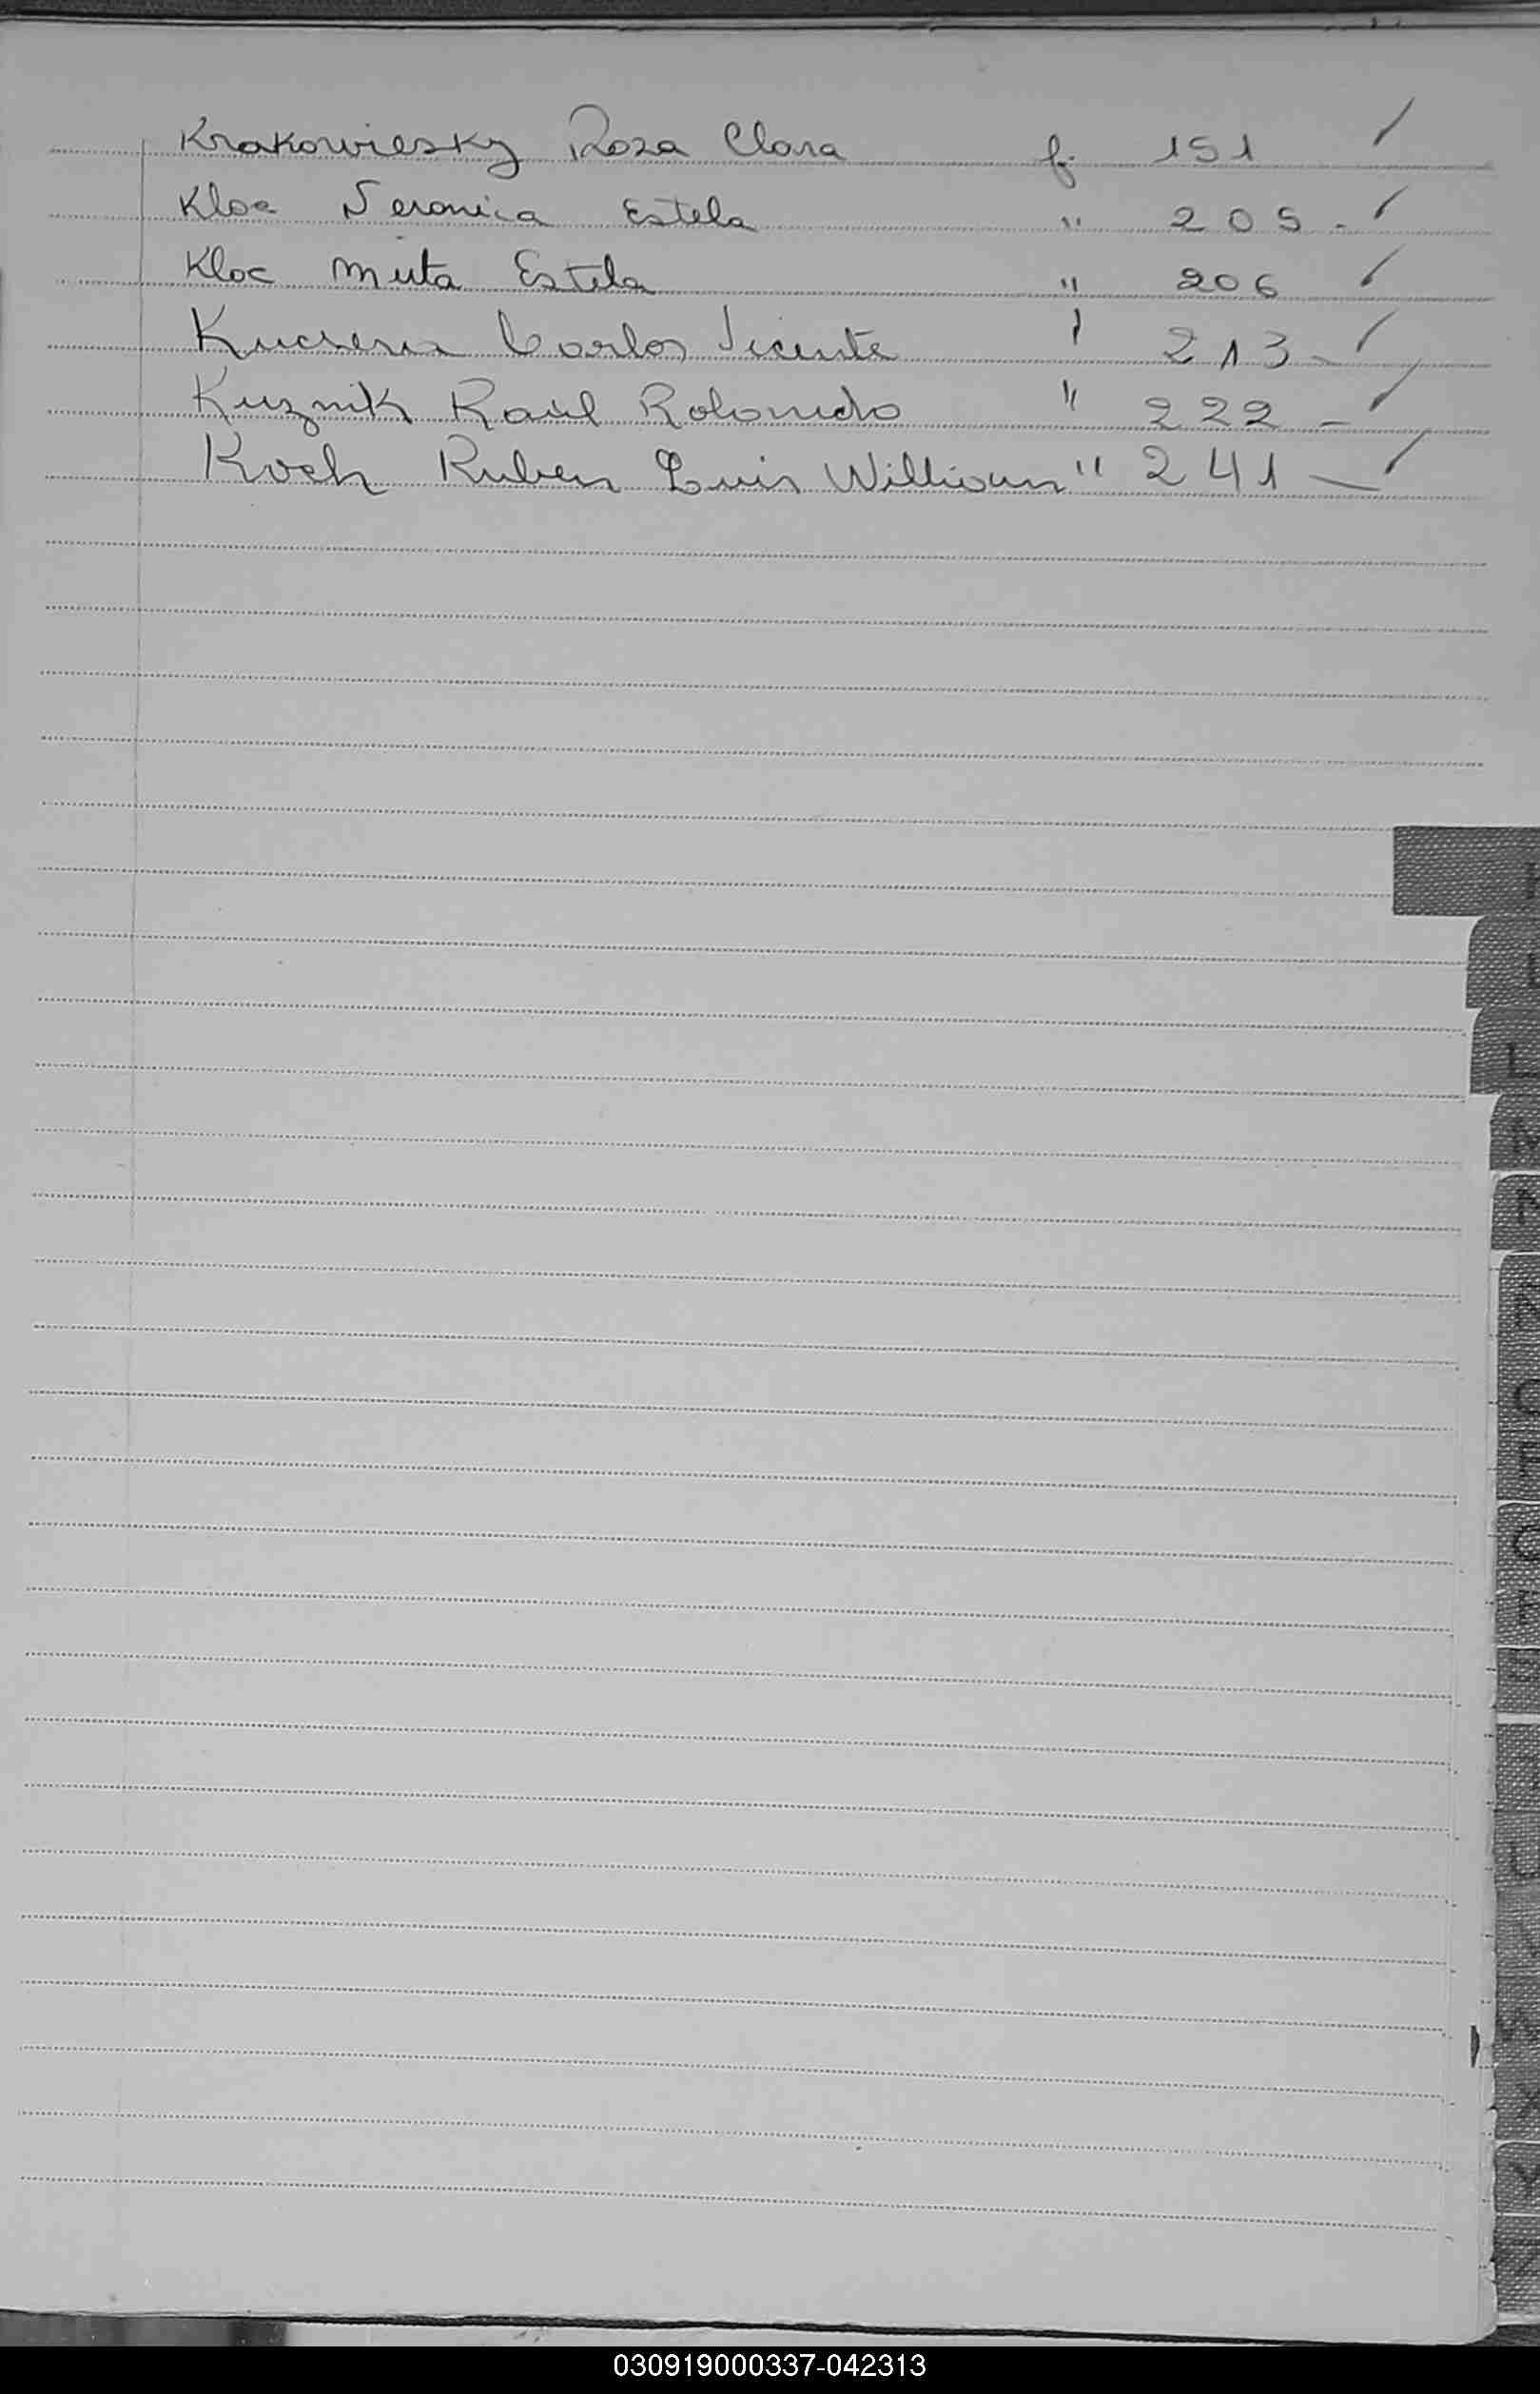 Krakowiesky Roza Clara f. 151 /
Kloc Veronica Estela " 205 - /
Kloc Mirta Estela " 206 /
Kucsera Carlos Vicente " 213 - /
Kuznik Raúl Rolando " 222 - /
Koch Ruben Luis William " 241 - /
L
M
N
O
Q
T
U
X
Y
Z
030919000337-042313